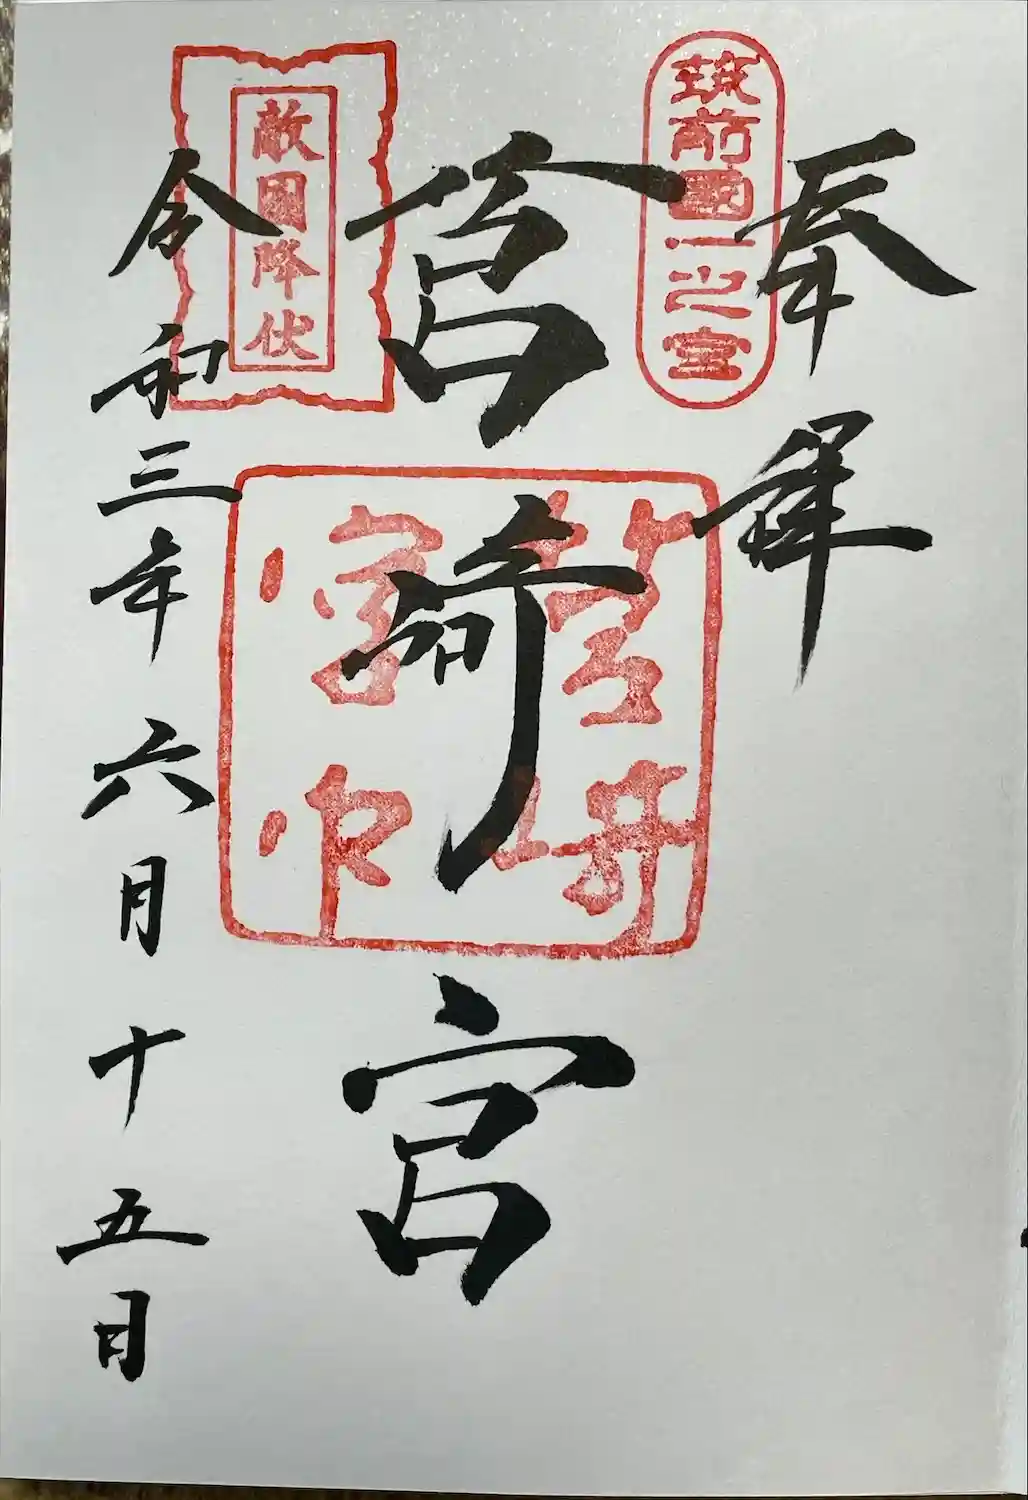 奉拝
筑前國一之宮
筥崎宮
筥崎宮
敵國降伏
令和三年六月十五日